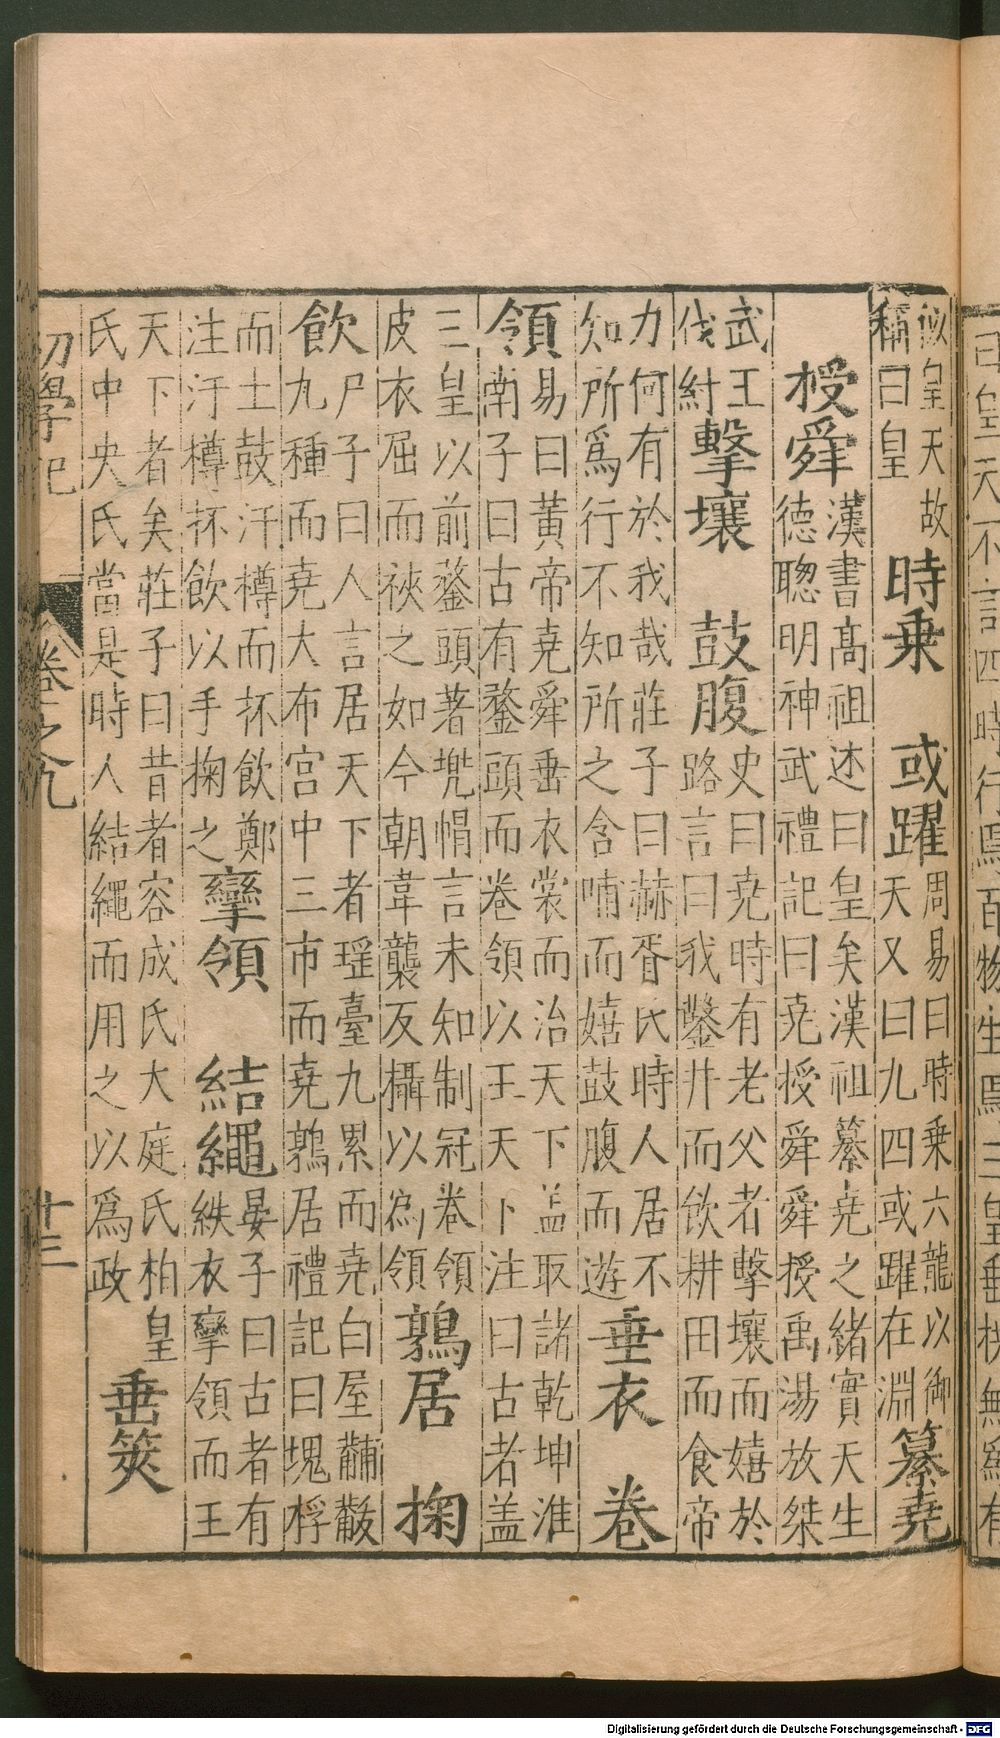 曰皇天不言四時行焉百物生焉三皇垂拱無爲有
似皇天故
稱曰皇
時乗 或躍
周易曰時乗六龍以御
天又曰九四或躍在淵
纂堯
授舜
漢書髙祖述曰皇矣漢祖纂堯之緒實天生
德聦明神武禮記曰堯授舜舜授禹湯放桀
武王
伐紂
擊壤 鼓腹
史曰堯時有老父者擊壤而嬉於
路言曰我鑿井而飲耕田而食帝
力何有於我哉莊子曰赫胥氏時人居不
知所爲行不知所之含哺而嬉鼓腹而遊
垂衣 卷
領
易曰黃帝堯舜垂衣裳而治天下盖取諸乾坤淮
南子曰古有鍪頭而卷領以王天下注曰古者盖
三皇以前鍪頭著兠帽言未知制冠卷領
皮衣屈而裌之如今朝韋襲反攝以爲領
鶉居 掬
飲
尸子曰人言居天下者瑶臺九累而堯白屋黼黻
九種而堯大布宫中三市而堯鶉居禮記曰塊桴
而土鼓汙樽而抔飲鄭
注汙樽抔飲以手掬之
攣領 結繩
晏子曰古者有
紩衣攣領而王
天下者矣莊子曰昔者容成氏大庭氏柏皇
氏中央氏當是時人結繩而用之以爲政
垂筴
初學記 卷之九 十三
Digitalisierung gefördert durch die Deutsche Forschungsgemeinschaft - DFG